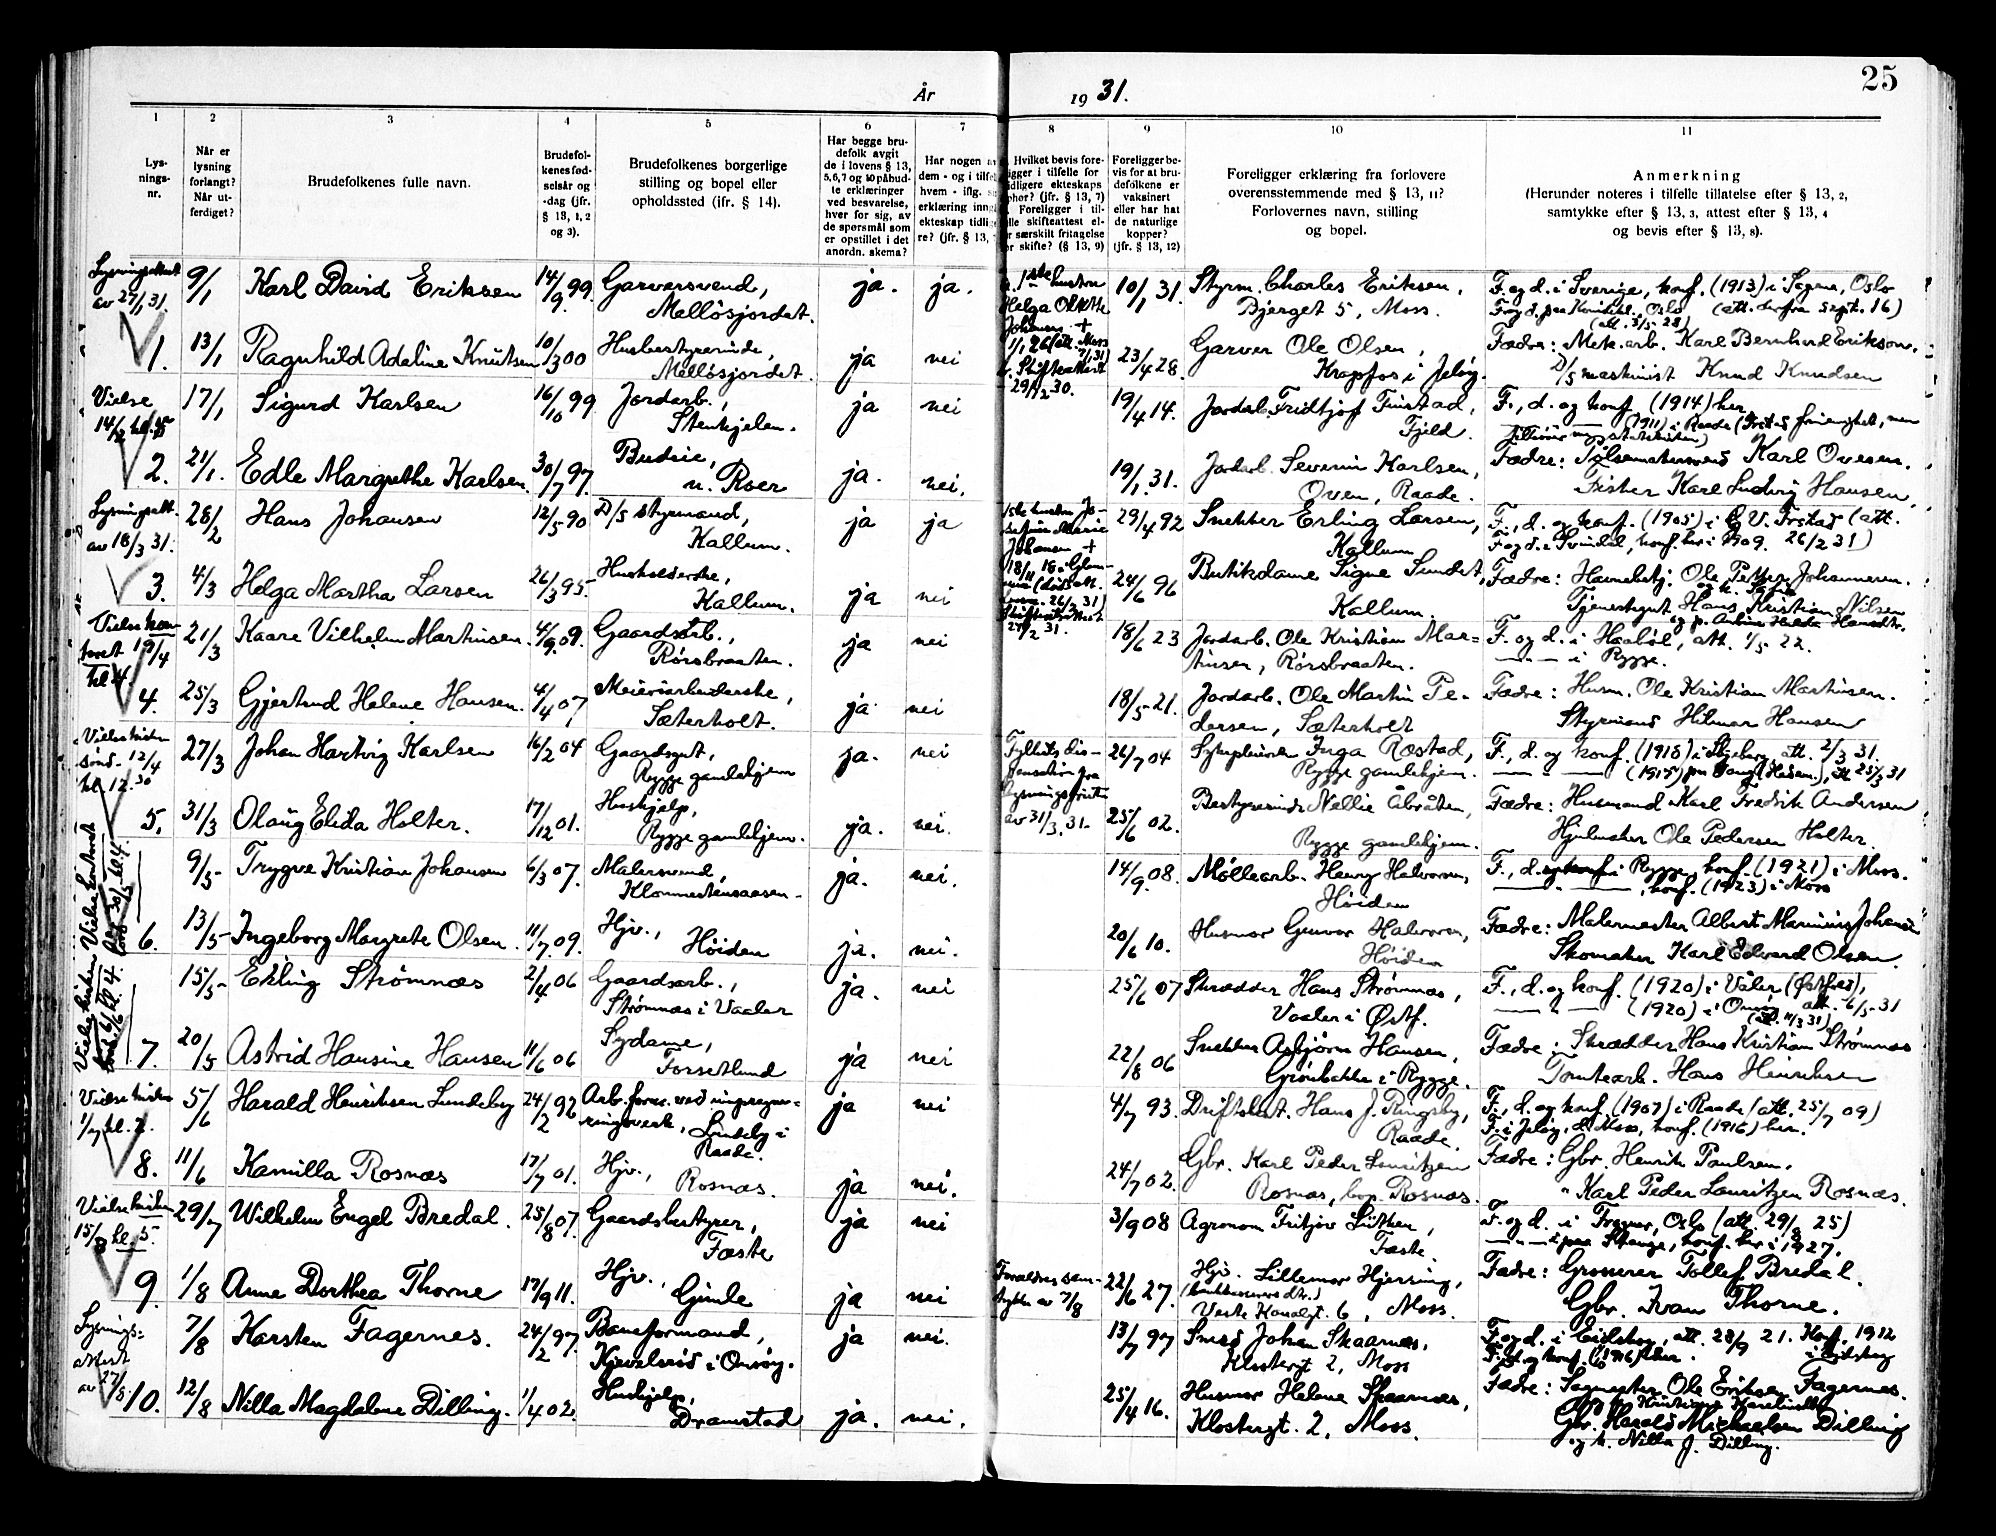 År 1931.
25
1 2 3 4 5 6 7 8 9 10 11
Lys-
nings-
nr.
Når er
lysning
forlangt?
Når ut-
ferdiget?
Brudefolkenes fulle navn.
Brudefol-
kenes fød-
selsår og
-dag (jfr.
§ 13, 1, 2
og 3).
Brudefolkenes borgerlige
stilling og bopel eller
opholdssted (ifr. § 14).
Har begge bru-
defolk avgit
de i lovens § 13,
5, 6, 7 og 10 påbud-
te erklæringer
ved besvarelse,
hver for sig, av
de spørsmål som
er opstillet i det
anordn. skema?
Har nogen av
dem - og i tilfel
hvem - iflg.
erklæring inng
ekteskap tidlig
re? (jfr. § 13,
Hvilket bevis fore-
igger i tilfelle for
idligere ekteskaps
phør? (jfr. § 13, 7)
Foreligger i til-
lle skifteattest el-
r særskilt fritagelse
or skifte? (§ 13, 9)
Foreligger be-
vis for at bru-
defolkene er
vaksinert
eller har hat
de naturlige
kopper?
(jfr. § 13, 12)
Foreligger erklæring fra forlovere
overensstemmende med § 13, 11?
Forlovernes navn, stilling
og bopel.
Anmerkning
(Herunder noteres i tilfelle tillatelse efter § 13, 2,
samtykke efter § 13, 3, attest efter § 13, 4
og bevis efter § 13, 8).
Lysningsattest
av 27/1 31.
9/1 Karl David Eriksen 14/9 99. Garversvend,
Melløsjordet. ja. ja. 1ste hustru
Helga
Johansen +
10/1 31. Styrm. Charles Eriksen,
Bjerget 5, Moss.
F. og d. i Sverige, konf. (1913) i Sagene, Oslo
(att. derfra sept. 16)
1. 13/1 Ragnhild Adeline Knutsen 10/3 00 Husbestyrerinde,
Melløsjordet. ja nei
Skifteattest
29/12 30.
23/4 28. Garver Ole Olsen,
Krapfos i Jeløy.
Fædre: Mek. arb. Karl Bernhard Erikson.
D/S maskinist Knud Knudsen
Vielse
14/2 kl. 5
17/1 Sigurd Karlsen 16/10 99 Jordarb.,
Stenkjelen. ja nei 19/4 14. Jordarb. Fridtjof Finstad,
Fjild.
F., d. og konf. (1914) her
(1911) i Raade
2. 21/1. Edle Margrethe Karlsen. 30/7 97. Budeie,
n. Roer ja. nei. 19/1. 31. Jordarb. Severin Karlsen,
Oven, Raade.
Fædre: Pølsemakersvend Karl Ovesen.
Fisker Karl Ludvig Hansen
Lysningsatt.
av 18/3 31.
28/2 Hans Johansen 12/5 90 D/S styrmand,
Kallum. ja ja 1ste hustru Jo-
sefine Marie
Johansen +
29/4 92 Snekker Erling Larsen,
Kallum
F., d. og konf. (1905) i (att.
26/2 31)
F. og d. i Svindal, konf. her i 1909.
3. 4/3 Helga Martha Larsen 26/3 95. Husholderske,
Kallum. ja nei
Skifteattest
24/2 31.
24/6 96 Butikdame Signe Sundet,
Kallum.
Fædre: Havnebetj. Ole Petter Johannesen.
Tjenestegut Hans Kristian Nilsen
Vielse kon-
toret 19/4
kl 4.
21/3 Kaare Vilhelm Martinsen. 4/9. 09. Gaardsarb.,
Rørsbraaten. ja nei 18/6 23 Jordarb. Ole Kristian Mar-
tinsen, Rørsbraaten.
F. og d. i Haabøl, att. 1/5 22.
— " — i Rygge.
4. 25/3 Gjertrud Helene Hansen. 4/4 07, Meieriarbeiderske,
Sæterholt. ja nei 18/5 21. Jordarb. Ole Martin Pe-
dersen, Sæterholt
Fædre: Husm. Ole Kristian Martinsen.
Styrmand Hilmar Hansen
Vielse kirken
sønd. 12/4
kl. 12.30
27/3 Johan Hartvig Karlsen 16/2 04 Gaardsgut,
Rygge gamlehjem ja. nei Fylkets dis-
pensation fra
lysningsfristen
av 31/3. 31.
26/7 04 Sykepleierske Inga Røstad,
Rygge gamlehjem.
F., d. og konf. (1918) i Skjeberg, att. 2/3 31.
— " — (1915) att 25/3 31
5. 31/3 Olaug Elida Holter. 17/12 01. Hushjelp,
Rygge gamlehjem. ja. nei. 25/6 02. Bestyrerinde Nellie Åbråten,
Rygge gamlehjem.
Fædre: Husmand Karl Fredrik Andersen
Hjulmaker Ole Pedersen Holter.
Vielse kontoret
30/5 kl. 4.
9/5 Trygve Kristian Johansen 6/3 07. Malersvend,
Klommestensaasen. ja. nei. 14/9. 08. Møllearb. Henry Halvorsen,
Høiden
F., d. i Rygge, konf. (1921) i Moss.
— " — , konf. (1923) i Moss
6. 13/5 Ingeborg Margrete Olsen. 11/7. 09. Hjv.,
Høiden ja. nei. 20/6 10. Husmor Gunvor Halvorsen,
Høiden
Fædre: Malermester Albert Marinius Johansen
Skomaker Karl Edvard Olsen.
Vielse kirken
6/6 kl. 4.
15/5 Erling Strømnæs 2/4 06 Gaardsarb.,
Strømnæs i Vaaler ja. nei 25/6 07 Skrædder Hans Strømnæs,
Vaaler i Østf.
F., d. og konf. (1920) i Våler (Østfold),
att. 6/5 31
— " — (1920) i Onsøy
(att. 11/3 31)
7. 20/5 Astrid Hansine Hansen 11/6 06 Sydame,
Forsetlund ja nei 22/8 06 Snekker Asbjørn Hansen,
Grønbakke i Rygge.
Fædre: Skrædder Hans Kristian Strømnæs
Tomtearb. Hans Hinriksen
Vielse kirken
1/7 kl. 7.
5/6 Harald Henriksen Lundeby 24/2 92 Arb. form. ved impregner-
ringsverk, Lundeby i
Raade. ja nei 4/7 93. Driftsbest. Hans J. Ringsby,
Raade.
F., d. og konf. (1907) i Raade (att. 25/7 09)
F. i Jeløy, d. Moss, konf. (1916) her.
8. 11/6 Kamilla Rosnæs 17/7 01. Hjv.,
Rosnæs. ja nei. 24/7 02. Gbr. Karl Peder Lauritzen
Rosnæs, bop. Rosnæs.
Fædre: Gbr. Henrik Paulsen.
" Karl Peder Lauritzen Rosnæs.
Vielse kirken
15/8 kl. 5.
29/7 Wilhelm Engel Bredal. 25/8 07. Gaardsbestyrer,
Fæste ja nei 3/9 08 Agronom Fritjov Lütken,
Fæste.
F. og d. i Frogner, Oslo (att. 29/8 25)
— " — paa Stange, konf. her i 1927.
9. 1/8 Anne Dorthea Thorne 17/9 11. Hjv.,
Gimle ja nei Forældres sam-
tykke av 7/8
22/6 27. Hjv. Lillemor Hjersing,
Vestre Kanalgt. 6, Moss.
Fædre: Grosserer Tollef Bredal.
Gbr. Ivan Thorne.
Lysnings-
attest
av 27/8
7/8 Karsten Fagernes. 24/2 97 Baneformand,
Kjevelsrød i Onsøy. ja nei. 13/7 97 Smed Johan Skaarnæs,
Klostergt 2, Moss
F. og d. i Eidsberg, att. 28/9 21. Konf. 1912
i Eidsberg
F., d. og konf. (1916) her.
10. 12/8 Nilla Magdalene Dilling. 1/4 02. Hushjelp,
Dramstad ja. nei. 25/4 16. Husmor Helene Skaarnæs,
Klostergt. 2, Moss.
Fædre: Sagmester Ole Eriksen Fagernes.
Gbr. Harald Michaelsen Dilling
og h. Nilla J. Dilling.